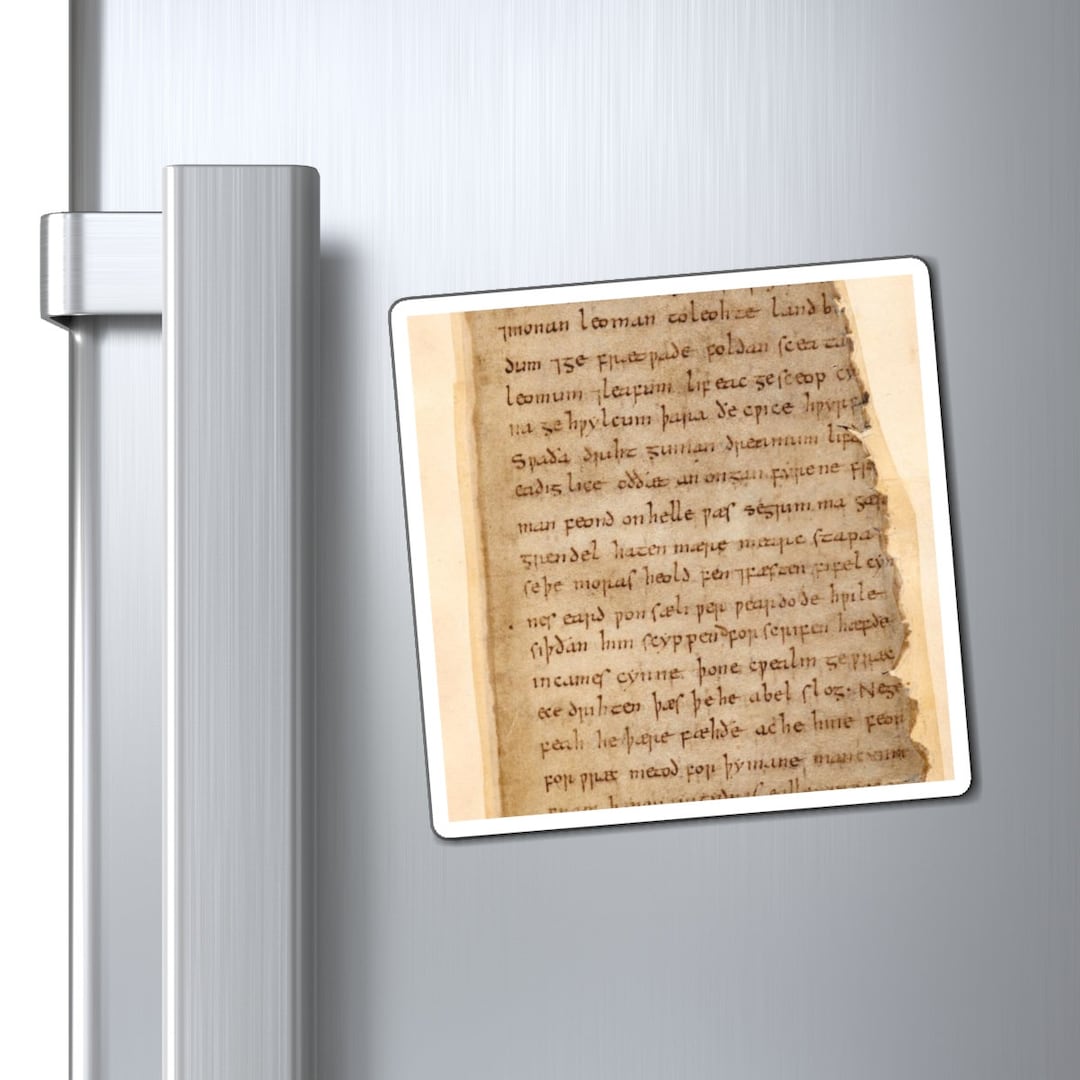 ⁊monan leoman to leohte land b
dum ⁊ge frætƿade foldan sceata
leomum ⁊leafum lif eac gesceop cy
na ge hƿylcum þara ðe cƿice hƿyrf
Sƿa ða driht guman dreamum lif
eadig lice oððæt an ongan fyrene fr
man feond on helle ƿæs se grim ma gæ
grendel haten mære mearc stapa
se þe moras heold fen ⁊fæsten fifel cyn
nes eard ƿon sæli ƿer ƿeardo de hƿile
siþðan him scyppend for scrifen hæfde
in caines cynne. þone cƿealm ge ƿræc
ece drihten þæs þe he abel slog. Ne ge
feah he þære fæhðe ac he hine feor
for ƿræc metod for þy mane man cynne